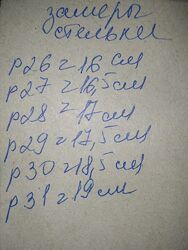 замеры
стельки
р26=16см
р27=16,5см
р28=17см
р29=17,5см
р30=18,5см
р31=19см